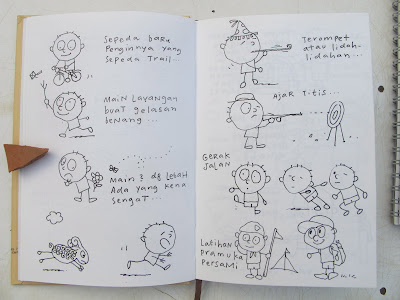 Sepeda baru
Penginnya yang
Sepeda Trail...
Main Layangan
buat gelasan
benang...
Main 2 dg Lebah
Ada yang kena
Sengat...
Terompet
atau lidah-
lidahan...
Ajar Titis...
Gerak
Jalan
Latihan
Pramuka
Persami